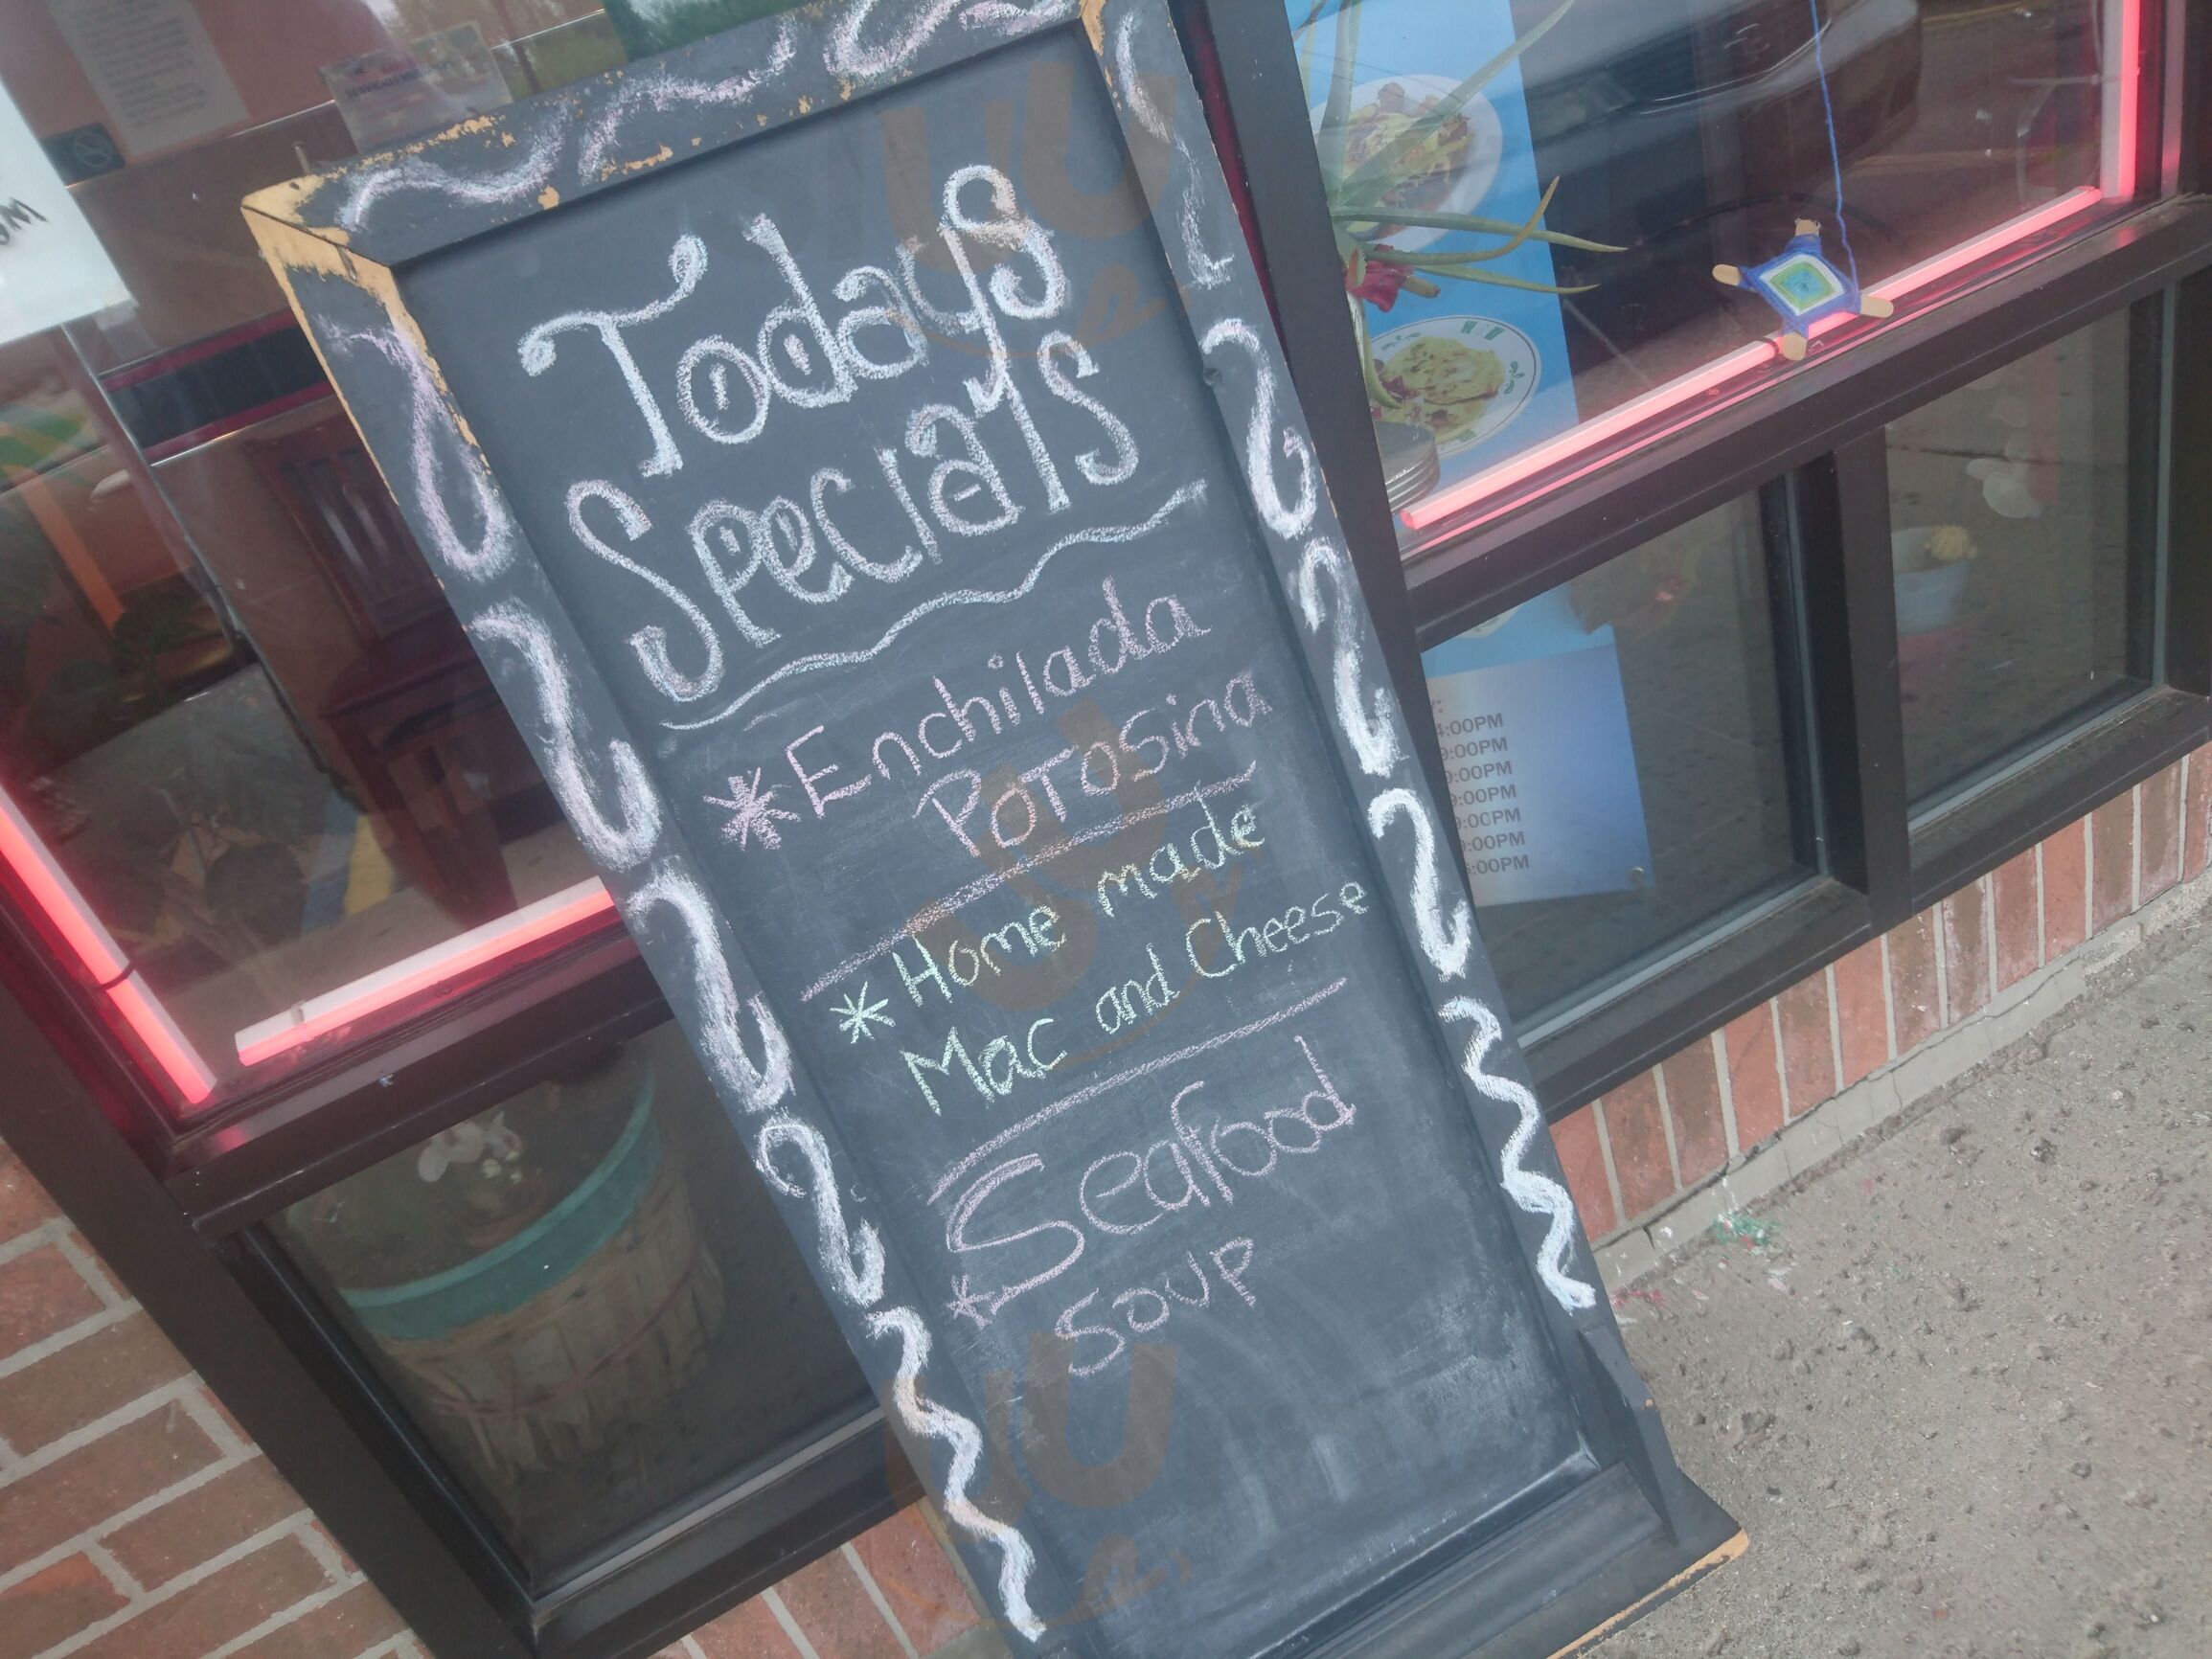 Todays
Specials
*Enchilada
Potosina
* Home made
Mac and Cheese
* Seafood
soup
4:00PM
9:00PM
9:00PM
9:00PM
9:00PM
9:00PM